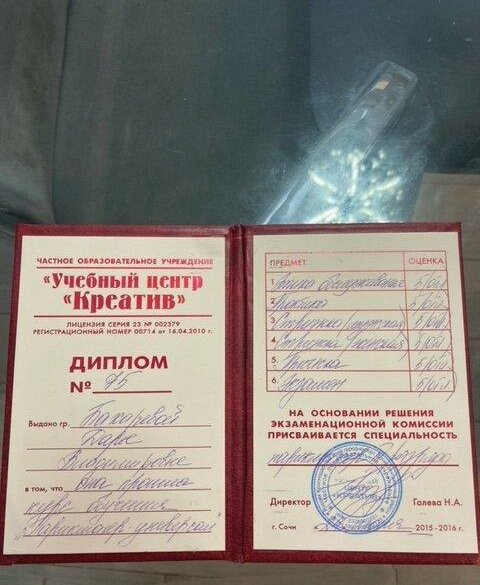 ЧАСТНОЕ ОБРАЗОВАТЕЛЬНОЕ УЧРЕЖДЕНИЕ
«Учебный центр
«Креатив»
ЛИЦЕНЗИЯ СЕРИЯ 23 № 002379
РЕГИСТРАЦИОННЫЙ НОМЕР 00714 от 16.04.2010 г.
ДИПЛОМ
№ 75
Выдано гр. Бахаревой
Дарье
Владимировне
в том, что она прошла
курс обучения
"Парикмахер-универсал"
ПРЕДМЕТ ОЦЕНКА
1. 5/отл
2. Практика 5/отл
3. Стрижка 5/отл
4. Стрижка 5/отл
5. 5/отл
6. Экзамен 5/отл
НА ОСНОВАНИИ РЕШЕНИЯ
ЭКЗАМЕНАЦИОННОЙ КОМИССИИ
ПРИСВАИВАЕТСЯ СПЕЦИАЛЬНОСТЬ
Директор Голева Н.А.
г. Сочи 2015-2016 г.